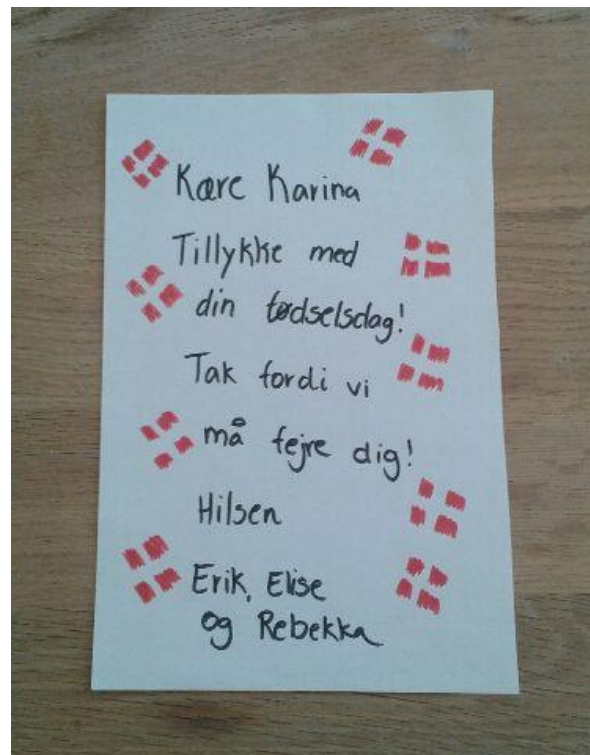 Kære Karina
Tillykke med
din fødselsdag!
Tak fordi vi
må fejre dig!
Hilsen
Erik, Elise
og Rebekka